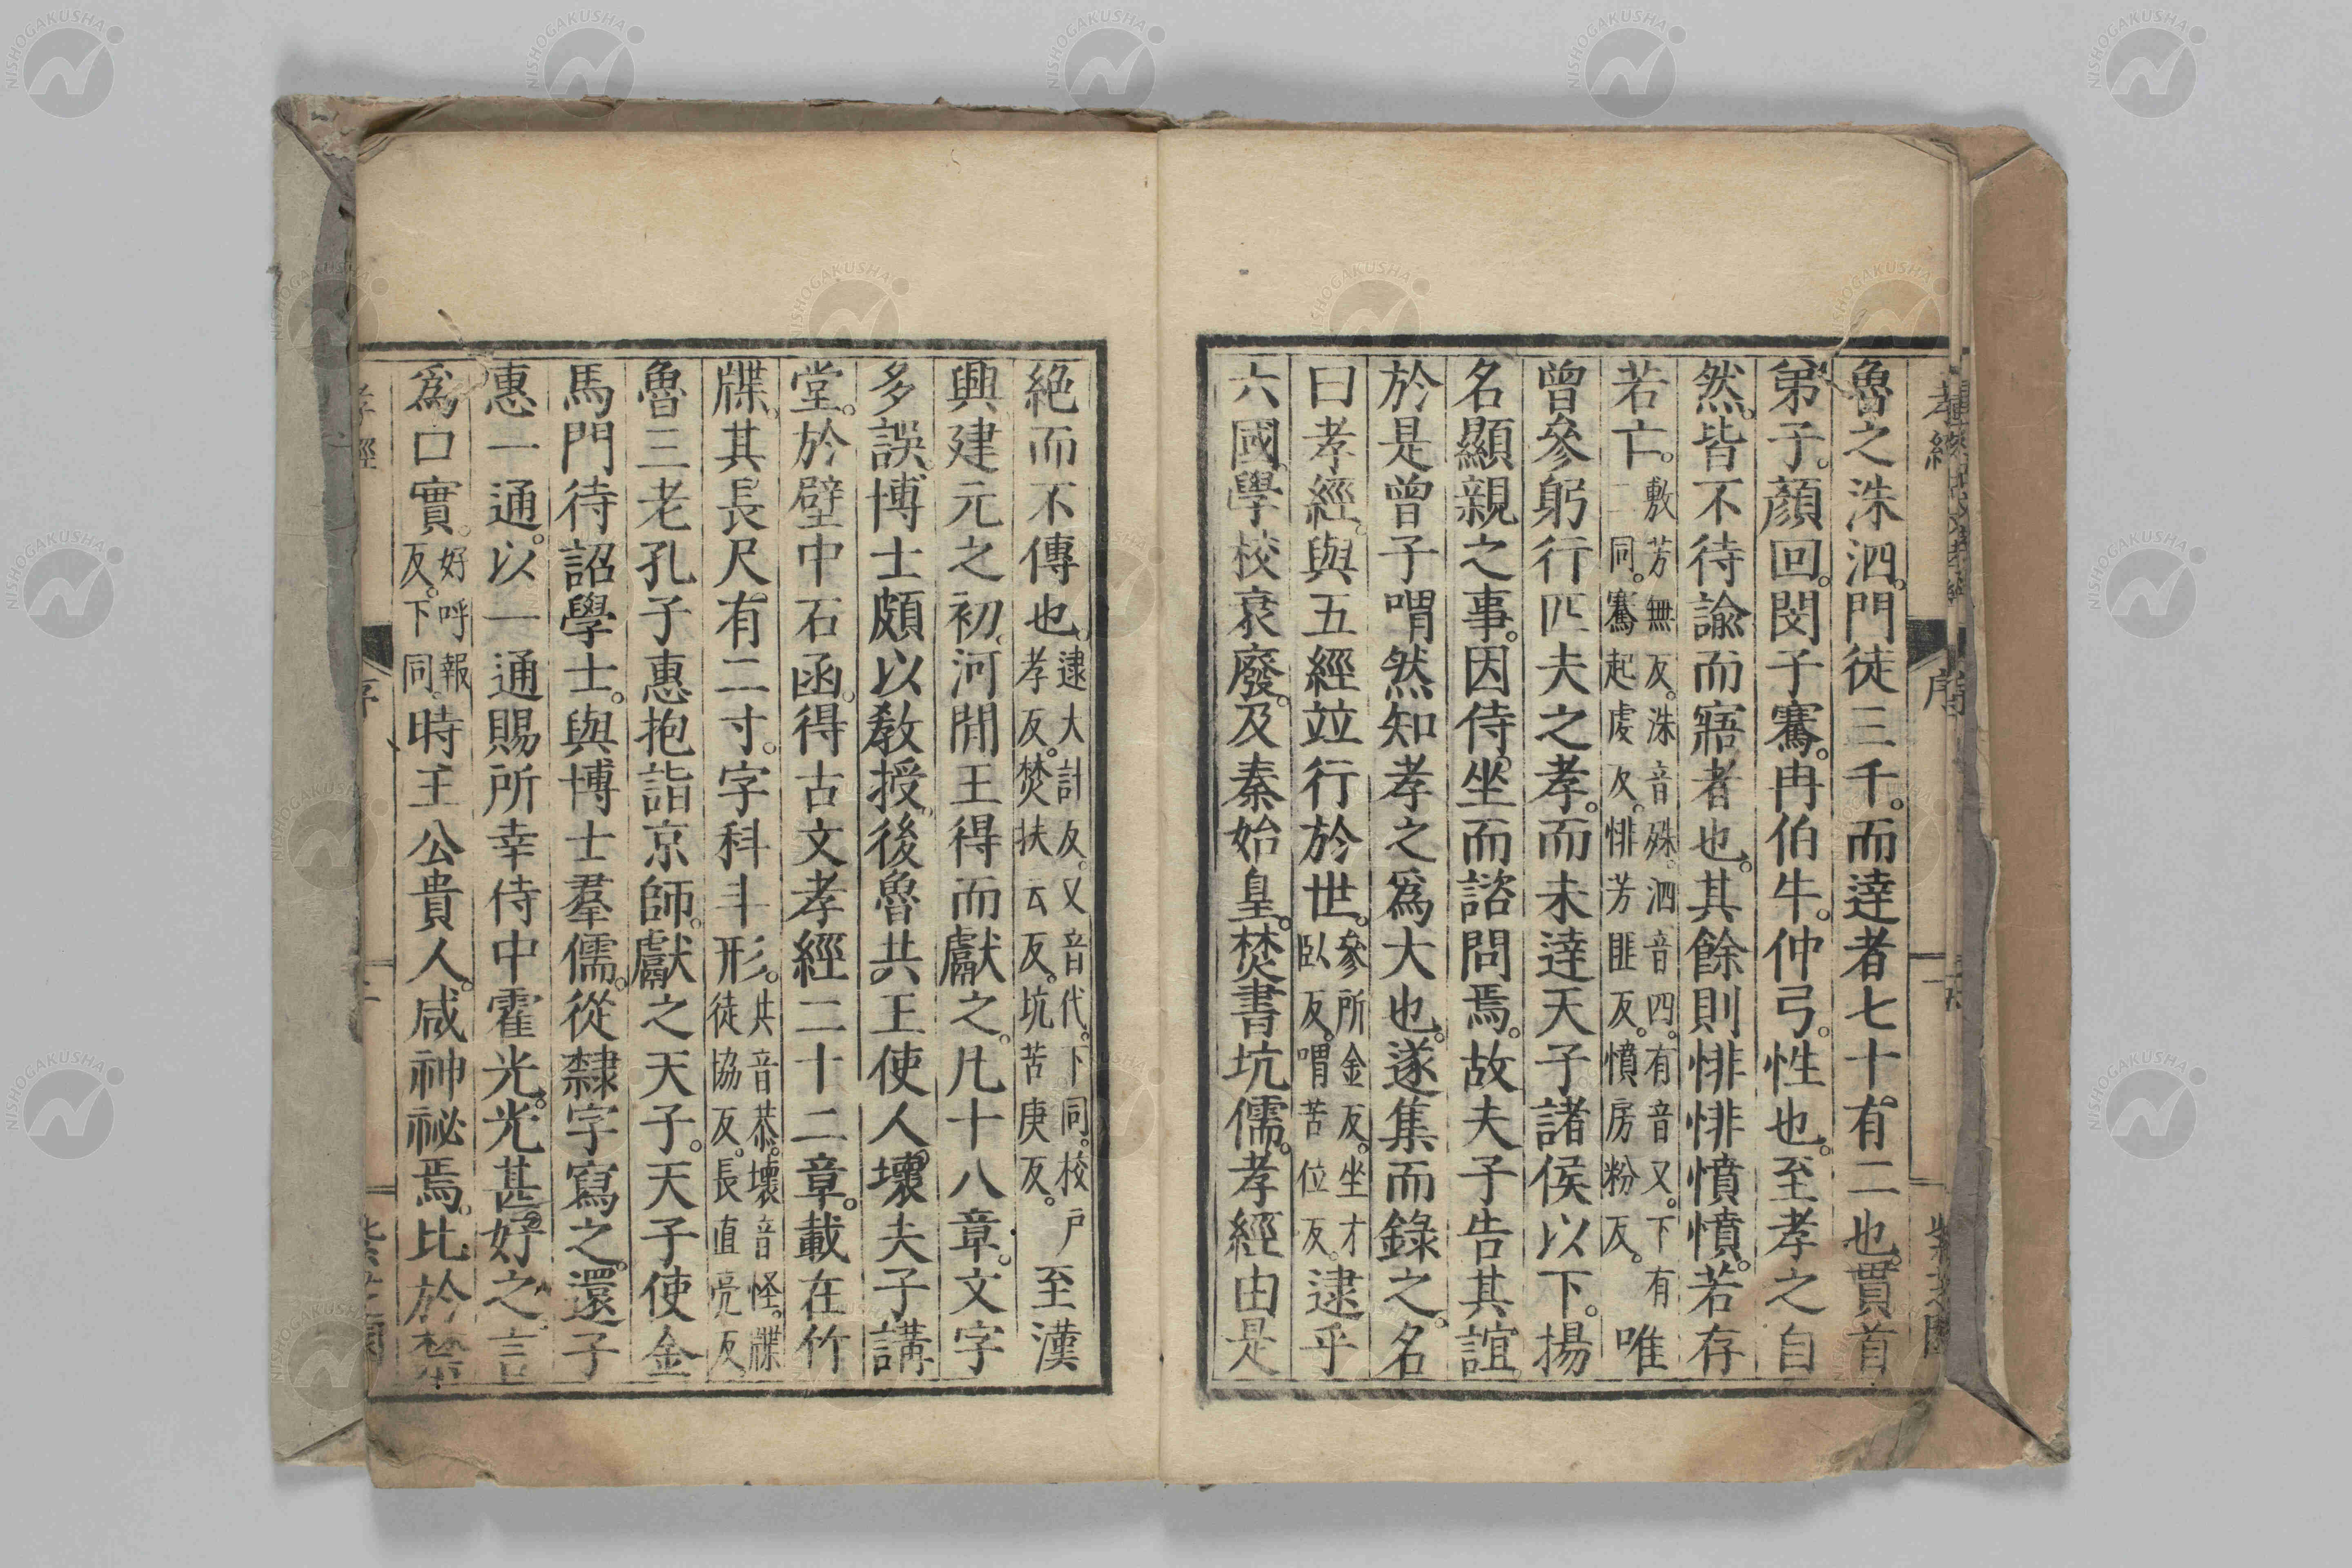 魯之洙泗。門徒三千。而達者七十有二也。貫首
弟子。顏回。閔子騫。冉伯牛。仲弓。性也。至孝之自
然。皆不待諭而寤者也。其餘則悱悱憤憤。若存
若亡。敷芳無反。洙音殊。泗音四。有音又。下有二同。騫起虔反。悱芳匪反。憤房粉反。唯
曾參躬行匹夫之孝。而未達天子諸侯以下。揚
名顯親之事。因侍坐而諮問焉。故夫子告其誼
於是曾子喟然知孝之爲大也。遂集而錄之。名
曰孝經。與五經竝行於世。參所金反。坐才臥反。喟苦位反。逮乎
六國。學校衰廢。及秦始皇。焚書坑儒。孝經由是
絕而不傳也。逮大計反。又音代。下同。校戶孝反。焚扶云反。坑苦庚反。至漢
興建元之初。河閒王得而獻之。凡十八章。文字
多誤。博士頗以敎授。後魯共王使人壞夫子講
堂。於壁中石函。得古文孝經二十二章。載在竹
牒。其長尺有二寸。字科斗形。共音恭。壞音怪。牒徒協反。長直亮反。
魯三老孔子惠抱詣京師。獻之天子。天子使金
馬門待詔學士。與博士羣儒。從隸字寫之。還子
惠一通。以一通賜所幸侍中霍光。光甚好之。言
爲口實。好呼報反。下同。時王公貴人。咸神祕焉。比於禁
孝經
序
NISHOGAKUSHA